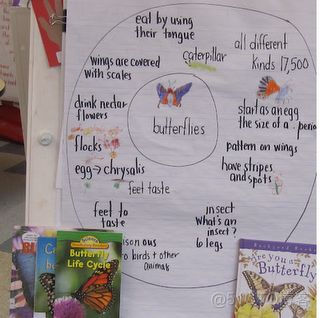 eat by using
their tongue
caterpillar
all different
kinds 17,500
wings are covered
with scales
drink nectar
flowers
start as an egg
the size of a . period
butterflies
flocks
pattern on wings
egg → chrysalis
have stripes
and spots
feet taste
feet to
taste
insect
what's an
insect?
6 legs
ous
to birds + other
animals
Butterfly
Life Cycle
Are you a
Butterfly